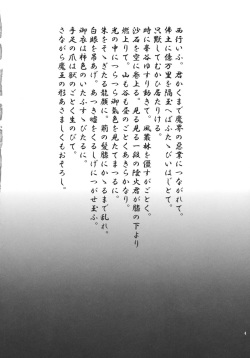 西行いふ、君かくまで魔界の悪業につながれて。
佛土に億万里を隔玉へばふたゝびいはじとて。
只黙してむかひ居たりける。
時に峯谷ゆすり動きて。風叢林を僵すがごとく。
沙石を空に巻上る。見る見る一段の陰火君が膝の下より
燃上りて。山も谷も昼のごとくあきらかなり。
光の中につら〳〵御氣色を見たてまつるに。
朱をそゝぎたる龍顔に。荊の髪膝にかゝるまで乱れ。
白眼を吊あげ。あつき嘘をくるしげにつがせ玉ふ。
御衣は柿色のいたうすゝびたるに。
手足の爪は獣のごとく生のびて。
さながら魔王の形あさましくもおそろし。